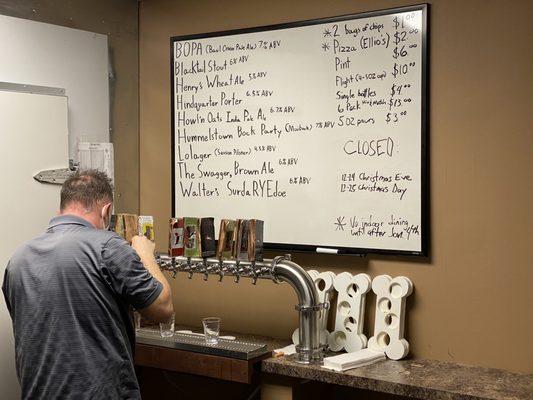 BOPA (Basil Cream Pale Ale) 7% ABV
Blacktail Stout 6% ABV
Henry's Wheat Ale 5% ABV
Hindquarter Porter 6.5% ABV
Howl'n Oats India Pale AL 6.7% ABV
Hummelstown Bock Party (Maibock) 7% ABV
Lolager (Session Pilsner) 4.5% ABV
The Swagger, Brown Ale 6% ABV
Walter's SurdaRYEdoe 6% ABV
* 2 bags of chips $1.00
* Pizza (Ellio's) $2.00
Pint $6
Flight (4-5oz cups) $10
Single bottles $4
6 Pack $13
5 oz pours $3
CLOSED:
12-24 Christmas Eve
12-25 Christmas Day
* No indoor dining
until after Jan 4th